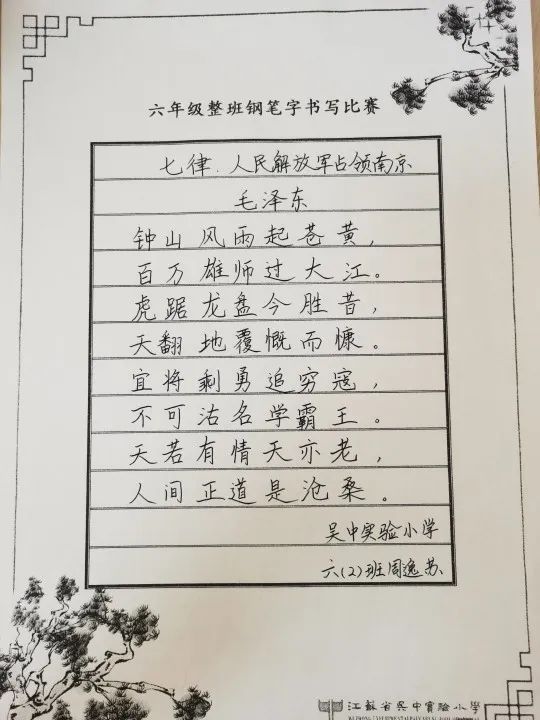 六年级整班钢笔字书写比赛
七律.人民解放军占领南京
毛泽东
钟山风雨起苍黄,
百万雄师过大江。
虎踞龙盘今胜昔,
天翻地覆慨而慷。
宜将剩勇追穷寇,
不可沽名学霸王。
天若有情天亦老,
人间正道是沧桑。
吴中实验小学
六(2)班周逸苏
江苏省吴中實驗小學